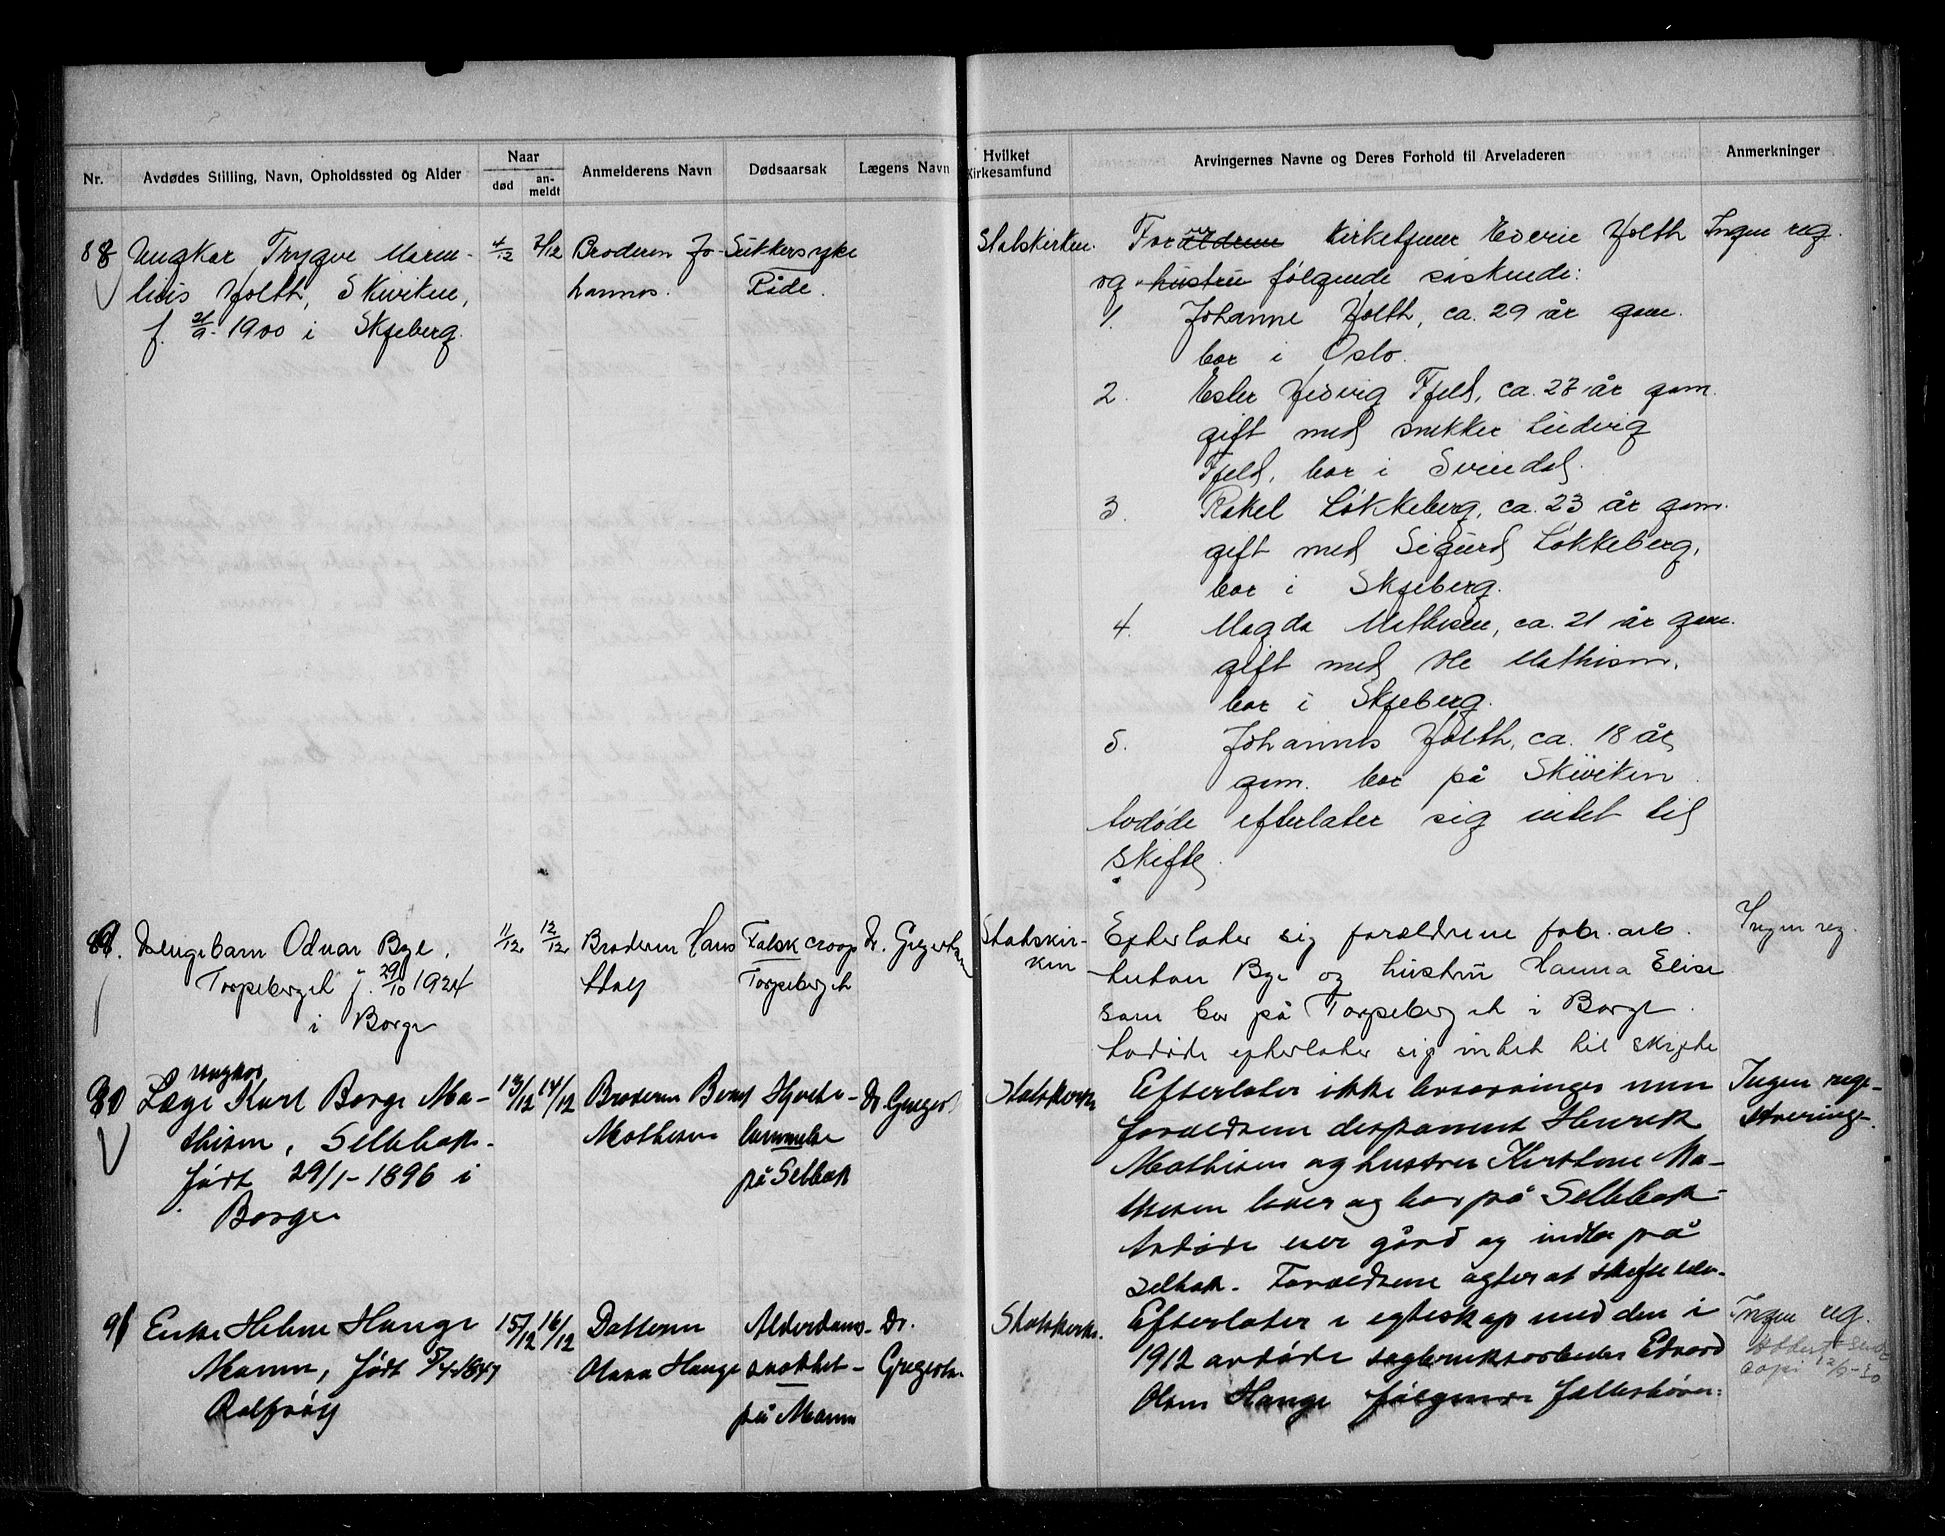 Nr.
Avdødes Stilling, Navn, Opholdssted og Alder
Naar
død
an-
meldt
Anmelderens Navn
Dødsaarsak
Lægens Navn
Hvilket
Kirkesamfund
Arvingernes Navne og Deres Forhold til Arveladeren
Anmerkninger
88
Ungkar Trygve
Holth, Skiviken,
f. 21/9-1900 i Skjeberg.
4/12
7/12
Broderen Jo-
hannes.
Sukkersyke
Råde.
Statskirken.
Far kirketjener Holth
og hustru følgende søskende:
1. Johanne Holth, ca. 29 år gam.
bor i Oslo.
2. Ester Hedvig Fjeld, ca. 27 år gam.
gift med snekker Ludvig
Fjeld, bor i Svindal.
3. Rakel Løkkeberg, ca. 23 år gam.
gift med Sigurd Løkkeberg,
bor i Skjeberg.
4. Magda Mathisen, ca. 21 år gam.
gift med Ole Mathisen,
bor i Skjeberg.
5. Johannes Holth, ca. 18 år
gam. bor på Skiviken.
Avdøde efterlater sig intet til
skifte.
Ingen reg.
89.
Pengebarn Odvar Bye,
Torpeberget f. 29/10 1924
i Borge
11/12
12/12
Broderen Hans
Falsk croop
Torpeberget
Dr. Gregertsen
Statskir-
ken
Efterlater sig forældrene fabr. arb.
Anton Bye og hustru Hanna Elise
som bor på Torpeberget i Borge.
Avdøde efterlater sig intet til skifte
Ingen reg.
90
Ungkar
Læge Karl Borge Ma-
thisen, Selbak.
født 29/1-1896 i
Borge
13/12
14/12
Broderen Bernt
Mathisen
Hjerte-
lammelse
på Selbak
Dr. Gregers.
Statskirke
Efterlater ikke livsarvinger men
forældrene disponent Henrik
Mathisen og hustru Kirstine Ma-
thisen lever og bor på Selbak.
Avdøde eier gård og indbo på
Selbak. Forældrene agter at skifte selv.
Ingen regi-
strering.
91
Enke Helene Hauge
Moum, født 5/4-1847
Rolfsøy
15/12
16/12
Datteren
Olava Hauge
Alderdoms-
svakhet
på Moum
Dr.
Gregertsen
Statskirke.
Efterlater i egteskap med den i
1912 avdøde sagbruksarbeider Edvard
Olsen Hauge følgende fællesbørn:
Ingen reg.
copi 12/9-30